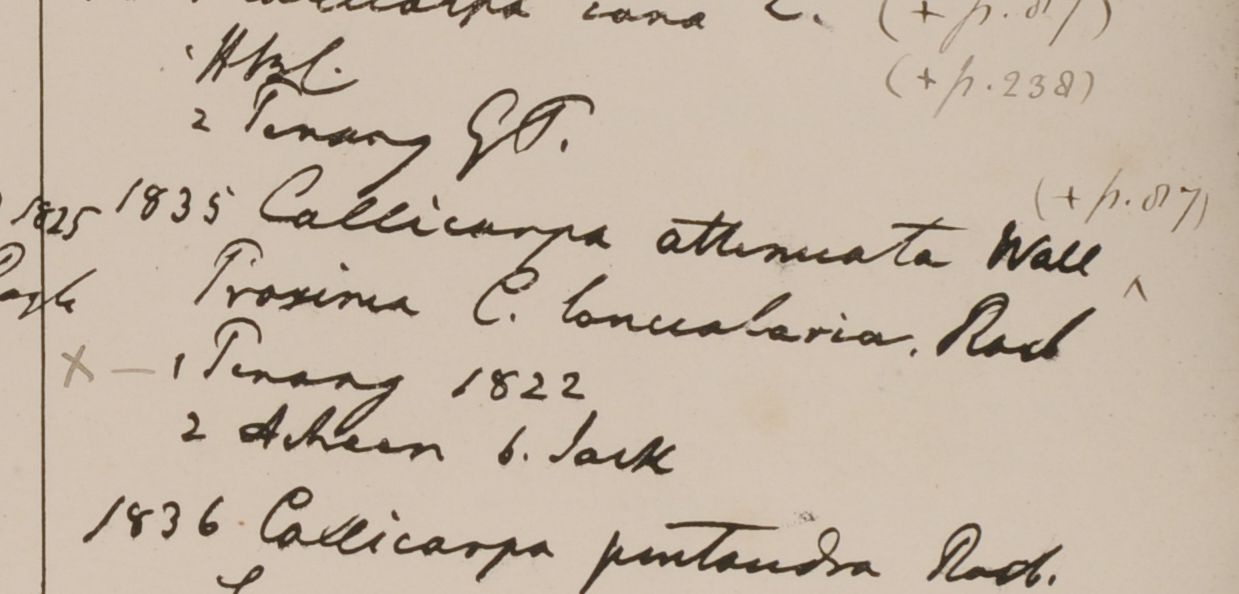 Callicarpa cana L. (+ p. 87)
(+ p. 238)
2 Penang G.P.
(+ p. 87)
1825 1835 Callicarpa attenuata Wall ^
Proxima C. lanceolaria. Roxb
x — 1 Penang 1822
2 Acheen b. Jack
1836 Callicarpa pentandra Roxb.